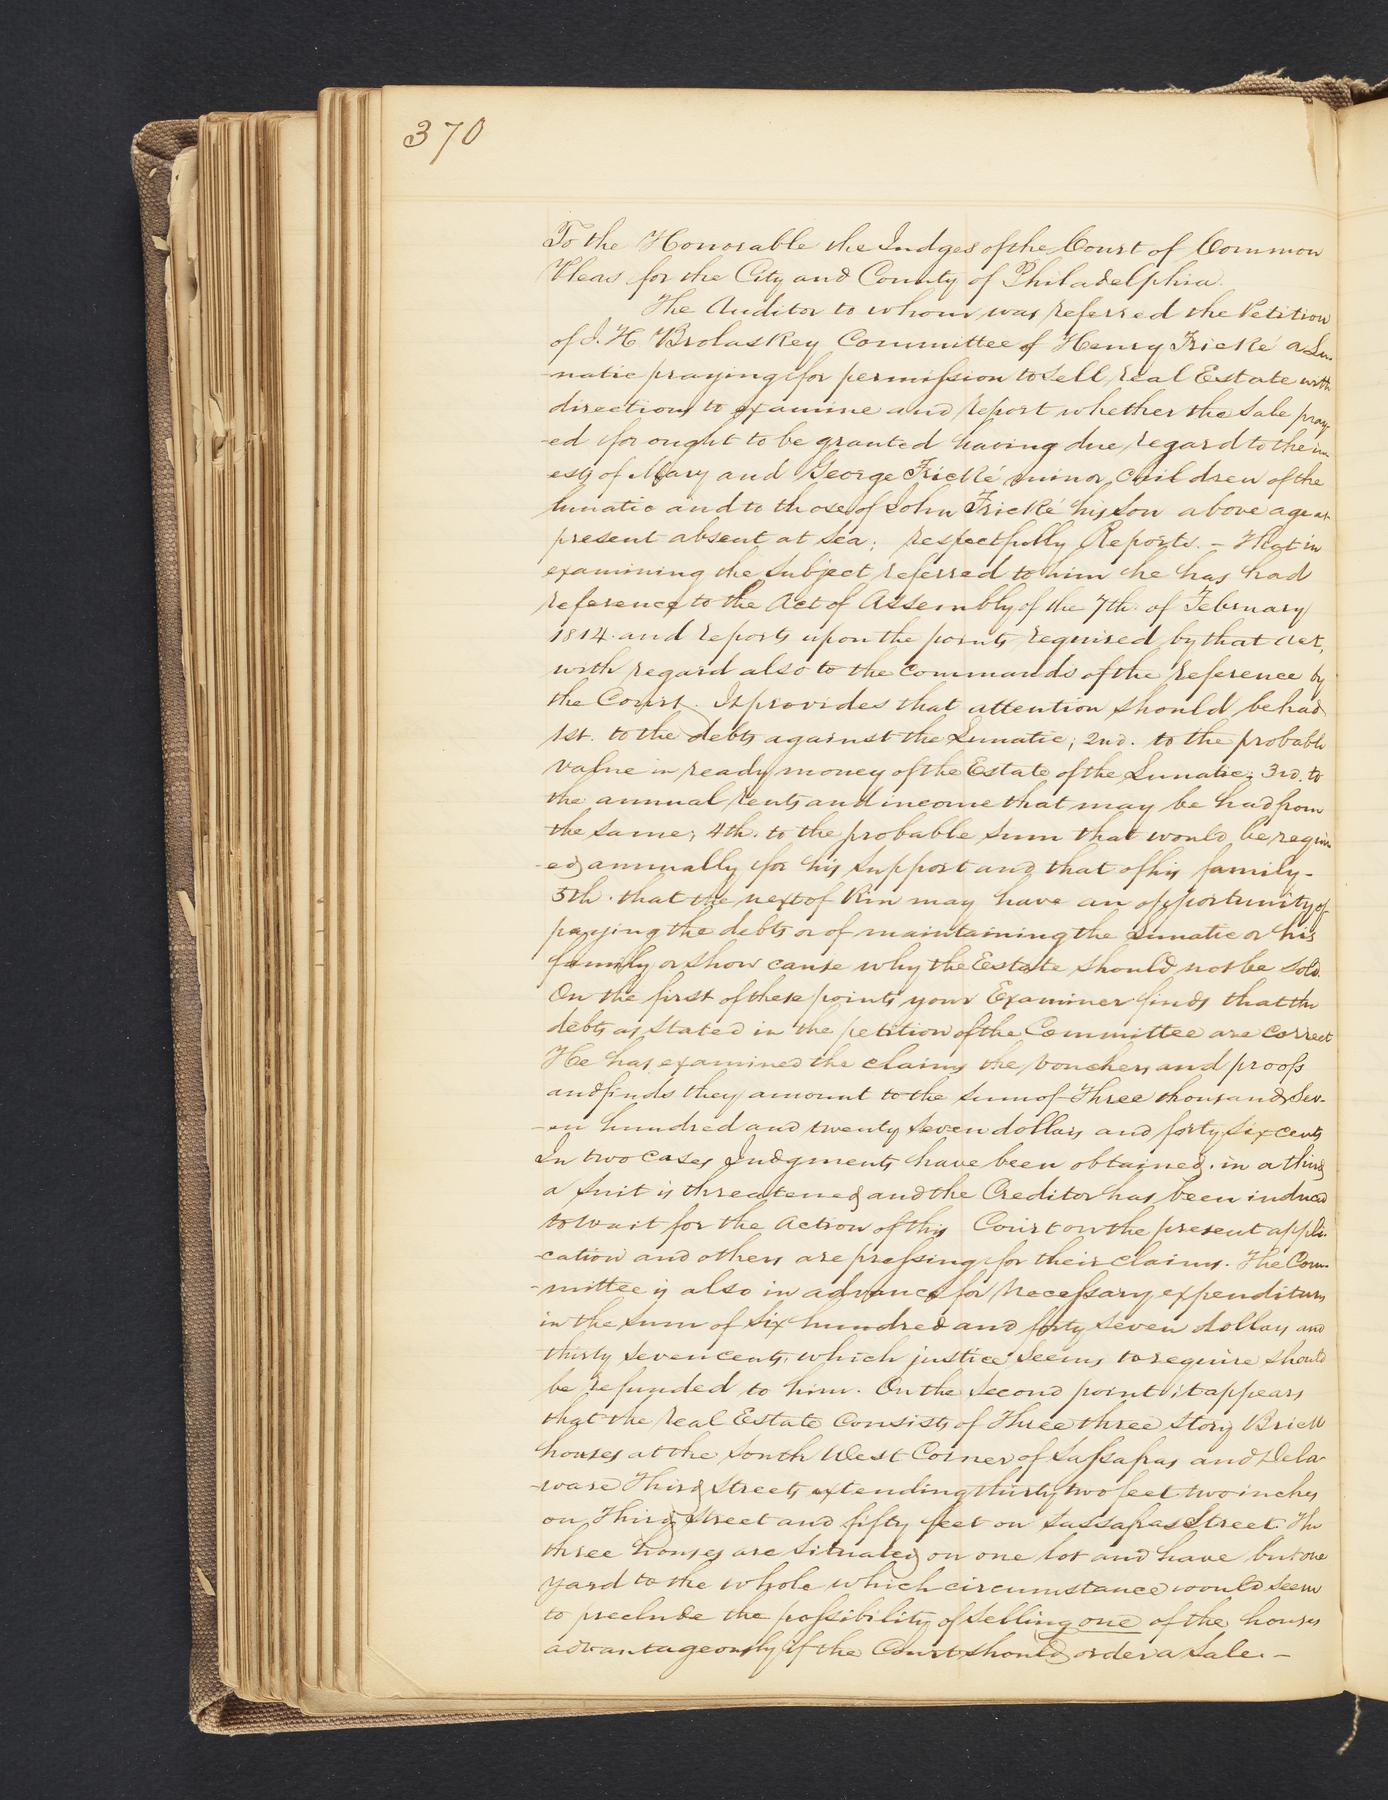 370
To the Honorable the Judges of the Court of Common
Pleas for the City and County of Philadelphia.
The Auditor to whom was referred the Petition
of J. H Brolaskey Committee of Henry Frické a Lu-
-natic praying for permission to sell real Estate with
directions to examine and report whether the sale pray-
-ed for ought to be granted having due regard to the in
ests of Mary and George Frické minor children of the
lunatic and to those of John Frické his son above age at
present absent at sea; respectfully Reports. – That in
examining the subject referred to him he has had
reference to the Act of Assembly of the 7th. of February
1814. and reports upon the points required by that act,
with regard also to the commands of the reference by
the Court. It provides that attention should be had
1st. to the debts against the Lunatic; 2nd. to the probable
value in ready money of the Estate of the Lunatic; 3rd. to
the annual rents and income that may be had from
the same; 4th. to the probable sum that would be requir
-ed annually for his support and that of his family -
5th. that the next of Kin may have an opportunity of
paying the debts or of maintaining the Lunatic or his
family or show cause why the Estate should not be sold.
On the first of these points your Examiner finds that the
debts as stated in the petition of the Committee are correct
He has examined the claims the vouchers and proofs
and finds they amount to the sum of Three thousand Sev-
-en hundred and twenty seven dollars and forty six cents
In two cases Judgments have been obtained. in a third
a suit is threatened and the Creditor has been induced
to wait for the Action of this Court on the present appli-
-cation and others are pressing for their claims. The Com-
-mittee is also in advance for necessary expenditures
in the sum of six hundred and forty seven dollars and
thirty seven cents, which justice seems to require should
be refunded to him. On the second point it appears
that the real Estate consists of Three three story Brick
houses at the South West Corner of Sassafras and Dela-
-ware Third Streets extending thirty two feet two inches
on Third Street and fifty feet on Sassafras Street. The
three houses are situated on one lot and have but one
yard to the whole which circumstance would seem
to preclude the possibility of selling one of the houses
advantageously if the Court should order a sale. –